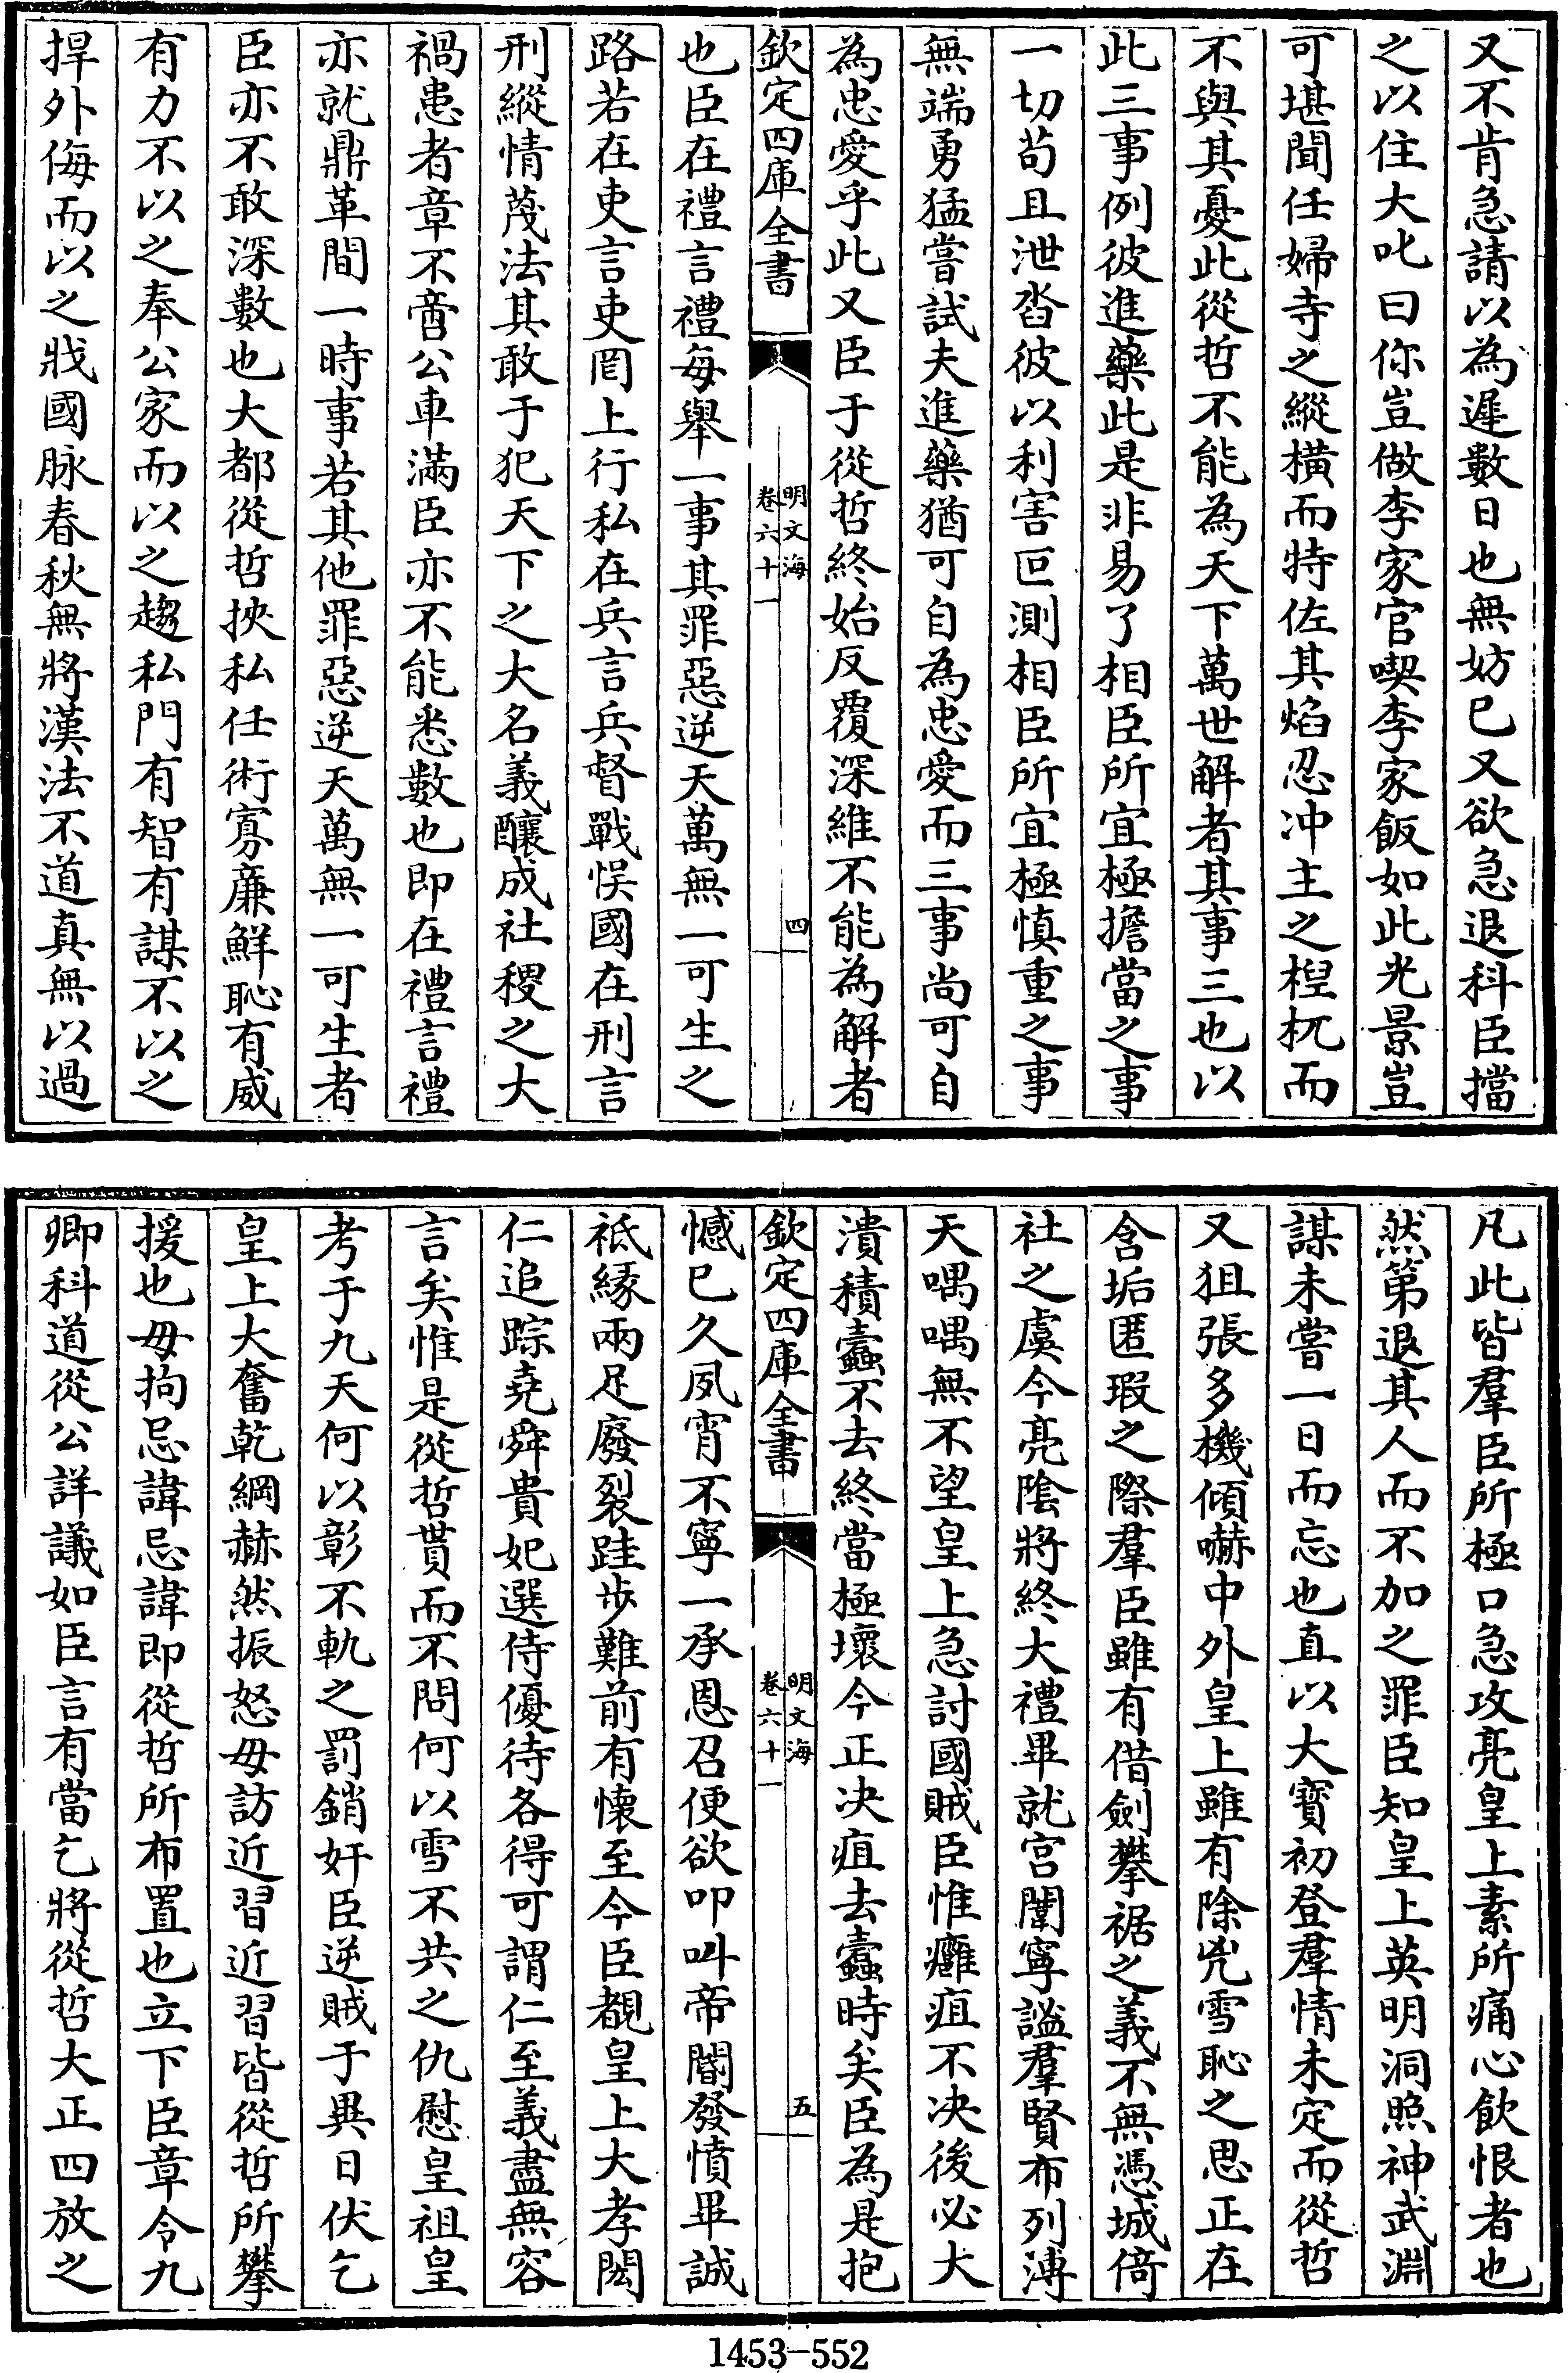 又不肯急請以為遲數日也無妨已又欲急退科臣擋
之以住大叱曰你豈做李家官喫李家飯如此光景豈
可堪聞任婦寺之縱橫而特佐其焰忍冲主之梎杌而
不與其憂此從哲不能為天下萬世解者其事三也以
此三事例彼進藥此是非易了相臣所宜極擔當之事
一切苟且泄沓彼以利害叵測相臣所宜極慎重之事
無端勇猛嘗試夫進藥猶可自為忠愛而三事尚可自
為忠愛乎此又臣于從哲終始反覆深維不能為解者
欽定四庫全書
明文海
卷六十一
四
也臣在禮言禮每舉一事其罪惡逆天萬無一可生之
路若在吏言吏罔上行私在兵言兵督戰悮國在刑言
刑縱情蔑法其敢于犯天下之大名義釀成社稷之大
禍患者章不啻公車滿臣亦不能悉數也即在禮言禮
亦就鼎革間一時事若其他罪惡逆天萬無一可生者
臣亦不敢深數也大都從哲挾私任術寡亷鮮恥有威
有力不以之奉公家而以之趨私門有智有謀不以之
捍外侮而以之戕國脉春秋無將漢法不道真無以過
凡此皆羣臣所極口急攻亮皇上素所痛心飲恨者也
然第退其人而不加之罪臣知皇上英明洞照神武淵
謀未嘗一日而忘也直以大寶初登羣情未定而從哲
又狙張多機傾嚇中外皇上雖有除兇雪恥之思正在
含垢匿瑕之際羣臣雖有借劍攀裾之義不無憑城倚
社之虞今亮陰將終大禮畢就宮闈寧謐羣賢布列溥
天喁喁無不望皇上急討國賊臣惟癰疽不決後必大
潰積蠹不去終當極壞今正決疽去蠹時矣臣為是抱
欽定四庫全書
明文海
卷六十一
五
憾已久夙宵不寧一承恩召便欲叩叫帝閽發憤畢誠
祗緣兩足廢裂跬步難前有懷至今臣覩皇上大孝閎
仁追踪堯舜貴妃選侍優待各得可謂仁至義盡無容
言矣惟是從哲貰而不問何以雪不共之仇慰皇祖皇
考于九天何以彰不軌之罰銷奸臣逆賊于異日伏乞
皇上大奮乾綱赫然振怒毋訪近習近習皆從哲所攀
援也毋拘忌諱忌諱即從哲所布置也立下臣章令九
卿科道從公詳議如臣言有當乞將從哲大正四放之
1453-552